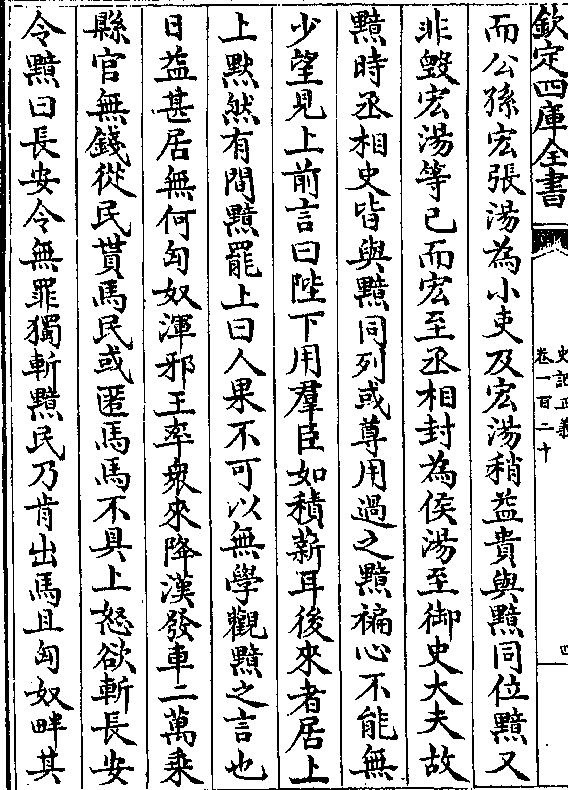 欽定四庫全書
史記正義
卷一百二十
四
而公孫宏張湯為小吏及宏湯稍益貴與黯同位黯又
非毀宏湯等已而宏至丞相封為侯湯至御史大夫故
黯時丞相史皆與黯同列或尊用過之黯褊心不能無
少望見上前言曰陛下用羣臣如積薪耳後來者居上
上黙然有間黯罷上曰人果不可以無學觀黯之言也
日益甚居無何匈奴渾邪王率衆來降漢發車二萬乗
縣官無錢從民貰馬民或匿馬馬不具上怒欲斬長安
令黯曰長安令無罪獨斬黯民乃肯出馬且匈奴畔其